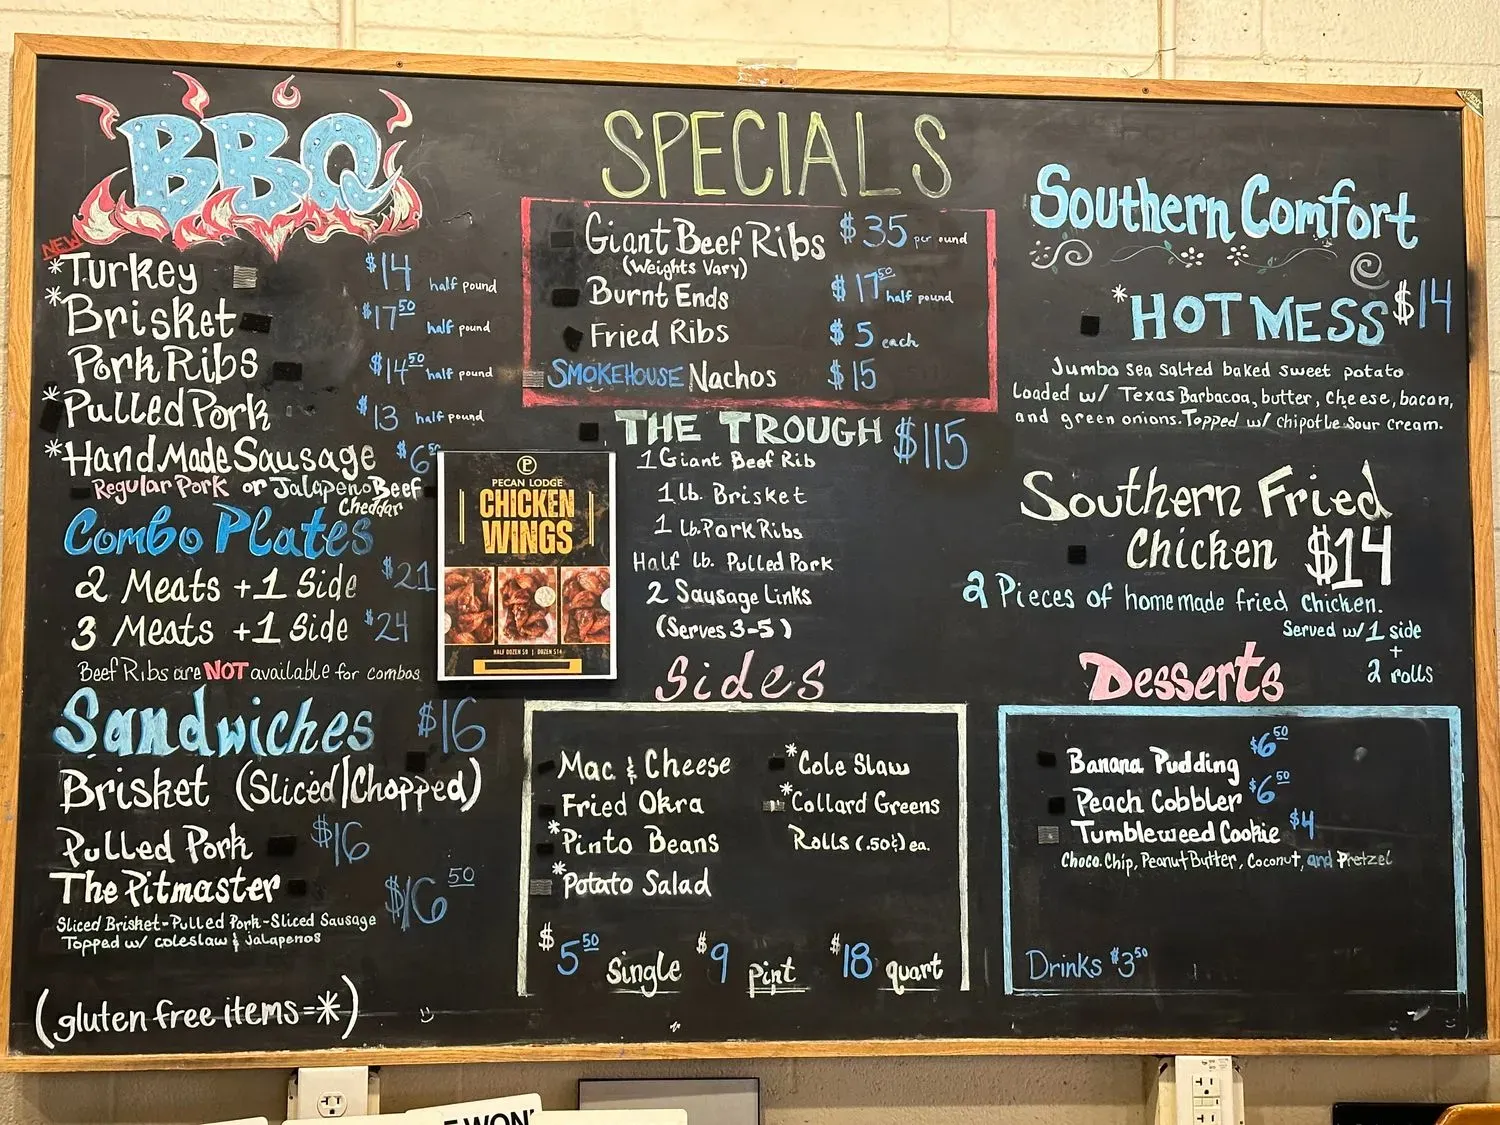 BBQ
NEW
*Turkey $14 half pound
*Brisket $17⁵⁰ half pound
Pork Ribs $14⁵⁰ half pound
*Pulled Pork $13 half pound
*Hand Made Sausage $6⁵⁰
Regular Pork or Jalapeno Beef
Cheddar
Combo Plates
2 Meats +1 Side $21
3 Meats +1 Side $24
Beef Ribs are NOT available for combos
Sandwiches $16
Brisket (Sliced|Chopped)
Pulled Pork $16
The Pitmaster $16⁵⁰
Sliced Brisket-Pulled Pork-Sliced Sausage
Topped w/ coleslaw & jalapenos
(gluten free items=*)
SPECIALS
Giant Beef Ribs $35 per ound
(Weights Vary)
Burnt Ends $17⁵⁰ half pound
Fried Ribs $5 each
SMOKEHOUSE Nachos $15
THE TROUGH $115
1 Giant Beef Rib
1 lb. Brisket
1 lb. Pork Ribs
Half lb. Pulled Pork
2 Sausage Links
(Serves 3-5)
P
PECAN LODGE
CHICKEN
WINGS
HALF DOZEN $8 | DOZEN $14
Sides
Mac & Cheese
Fried Okra
*Pinto Beans
*Potato Salad
*Cole Slaw
*Collard Greens
Rolls (.50¢) ea.
$5⁵⁰ Single $9 pint $18 quart
Southern Comfort
*HOT MESS $14
Jumbo sea salted baked sweet potato
Loaded w/ Texas Barbacoa, butter, cheese, bacon,
and green onions. Topped w/ chipotle sour cream.
Southern Fried
Chicken $14
2 Pieces of homemade fried chicken.
Served w/ 1 side
+
2 rolls
Desserts
Banana Pudding $6⁵⁰
Peach Cobbler $6⁵⁰
Tumbleweed Cookie $4
Choco. Chip, Peanut Butter, Coconut, and Pretzel
Drinks $3⁵⁰
WON'